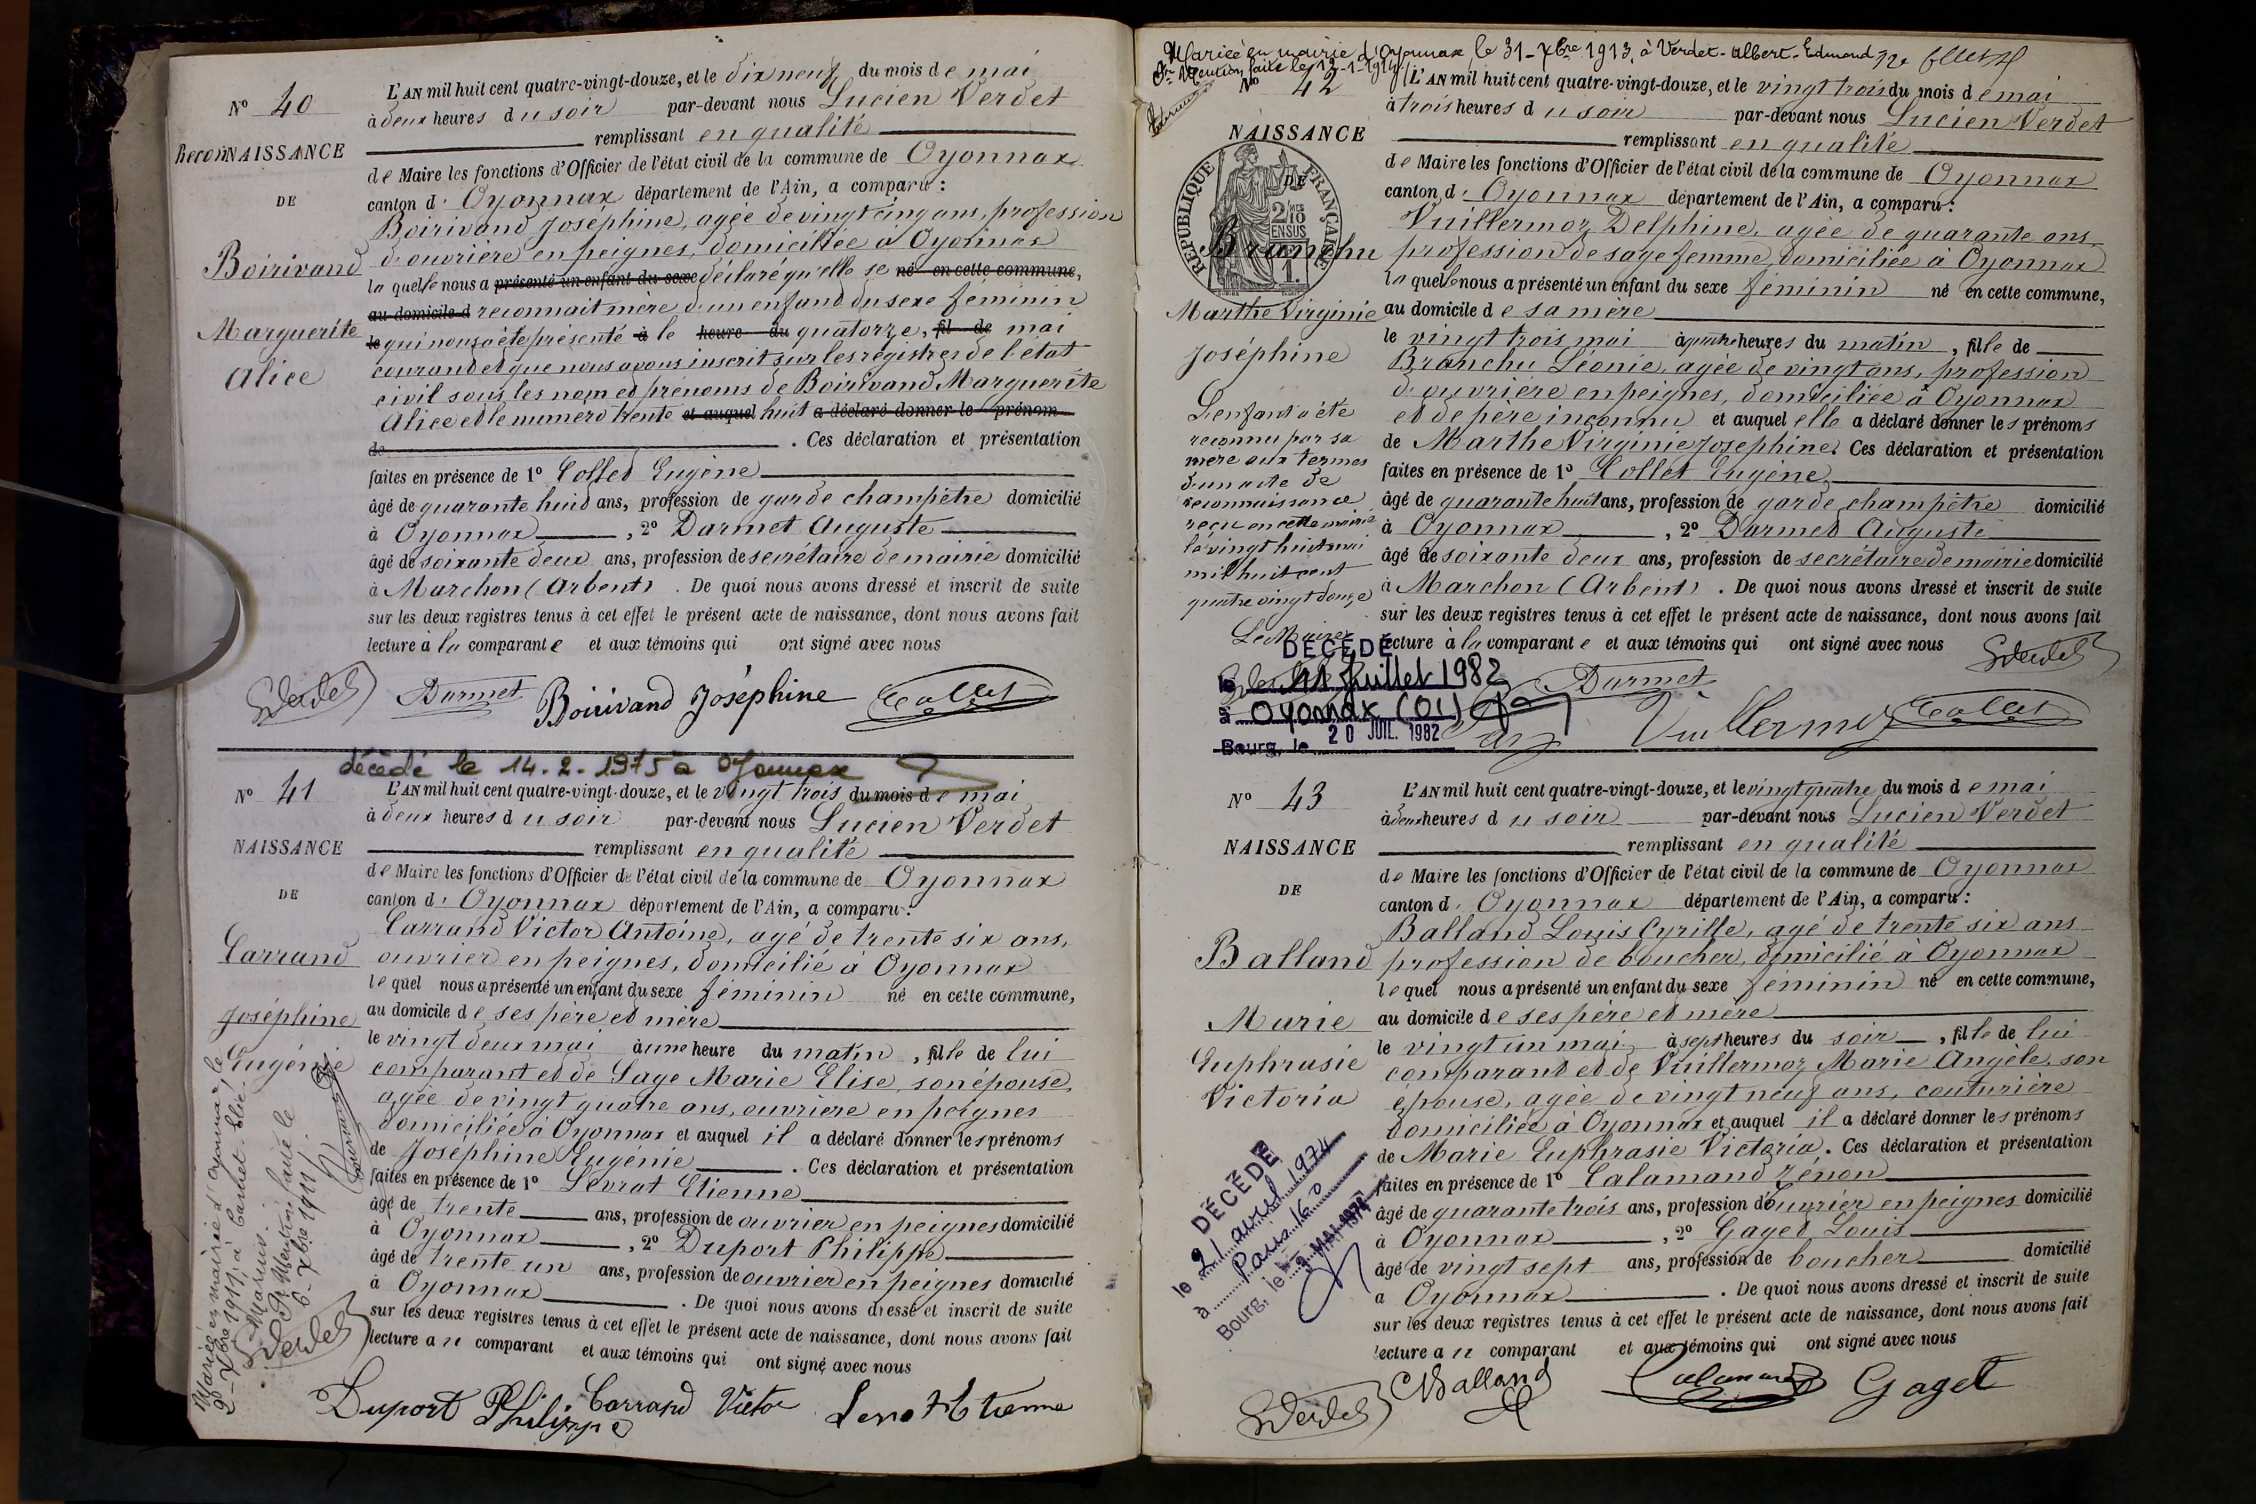 N° 40
RecoNNAISSANCE
DE
Boirivand
Marguerite
Alice
L'AN mil huit cent quatre-vingt-douze, et le dix neuf du mois de mai
à deux heures du soir par-devant nous Lucien Verdet
remplissant en qualité
de Maire les fonctions d'Officier de l'état civil de la commune de Oyonnax
canton d' Oyonnax département de l'Ain, a comparu :
Boirivand Joséphine, agée de vingt cinq ans, profession
d'ouvrière en peignes, domiciliée à Oyonnax
la quelle nous a présenté un enfant du sexe déclaré qu'elle se né en cette commune,
au domicile d reconnait mère d'un enfant du sexe féminin
le qui nous a été présenté à le heure du quatorze, fil de mai
courand et que nous avons inscrit sur les régistres de l'état
civil sous les nom et prénoms de Boirivand Marguerite
Alice et le numéro trente et auquel huit a déclaré donner le prénom
de . Ces déclaration et présentation
faites en présence de 1° Collet Eugène
âgé de quarante huit ans, profession de garde champêtre domicilié
à Oyonnax , 2° Darmet Auguste
âgé de soixante deux ans, profession de secrétaire de mairie domicilié
à Marchon (Arbent) . De quoi nous avons dressé et inscrit de suite
sur les deux registres tenus à cet effet le présent acte de naissance, dont nous avons fait
lecture à la comparante et aux témoins qui ont signé avec nous
Verdet Darmet Boirivand Joséphine Collet
décédé le 14.2.1975 à Oyonnax
N° 41
NAISSANCE
DE
Carrand
Joséphine
Eugénie
Mariée en mairie d'Oyonnax le
2 - Xbre 1911, à Carret
Marius
Mention faite le
6 - Xbre 1911
Verdet
L'AN mil huit cent quatre-vingt-douze, et le vingt trois du mois de mai
à deux heures du soir par-devant nous Lucien Verdet
remplissant en qualité
de Maire les fonctions d'Officier de l'état civil de la commune de Oyonnax
canton d' Oyonnax département de l'Ain, a comparu :
Carrand Victor Antoine, agé de trente six ans,
ouvrier en peignes, domicilié à Oyonnax
le quel nous a présenté un enfant du sexe féminin né en cette commune,
au domicile de ses père et mère
le vingt deux mai à une heure du matin , fille de lui
comparant et de Sage Marie Elise, son épouse,
agée de vingt quatre ans, ouvrière en peignes
domiciliée à Oyonnax et auquel il a déclaré donner les prénoms
de Joséphine Eugénie . Ces déclaration et présentation
faites en présence de 1° Levrat Etienne
âgé de trente ans, profession de ouvrier en peignes domicilié
à Oyonnax , 2° Duport Philippe
âgé de trente un ans, profession de ouvrier en peignes domicilié
à Oyonnax . De quoi nous avons dressé et inscrit de suite
sur les deux registres tenus à cet effet le présent acte de naissance, dont nous avons fait
lecture au comparant et aux témoins qui ont signé avec nous
Duport Philippe Carrand Victor Levrat Etienne
Mariée en mairie d'Oyonnax, le 31 - Xbre 1913, à Verdet - Albert - Edmond
Mention faite le 12-1-1914
N° 42
NAISSANCE
DE
REPUBLIQUE FRANÇAISE
2/10 EN SUS
1.
Branchu
Marthe Virginie
Joséphine
L'enfant a été
reconnu par sa
mère aux termes
d'un acte de
reconnaissance
reçu en cette mairie
le vingt huit mai
mil huit cent
quatre vingt douze
Le Maire
DÉCÉDÉ
le 11 Juillet 1982
à Oyonnax (01)
Bourg, le 20 JUIL. 1982
L'AN mil huit cent quatre-vingt-douze, et le vingt trois du mois de mai
à trois heures du soir par-devant nous Lucien Verdet
remplissant en qualité
de Maire les fonctions d'Officier de l'état civil de la commune de Oyonnax
canton d' Oyonnax département de l'Ain, a comparu :
Vuillermoz Delphine, agée de quarante ans,
profession de sage femme, domiciliée à Oyonnax
la quelle nous a présenté un enfant du sexe féminin né en cette commune,
au domicile de sa mère
le vingt trois mai à quatre heures du matin , fille de
Branchu Léonie, agée de vingt ans, profession
d'ouvrière en peignes, domiciliée à Oyonnax
et de père inconnu et auquel elle a déclaré donner les prénoms
de Marthe Virginie Joséphine. Ces déclaration et présentation
faites en présence de 1° Collet Eugène
âgé de quarante huit ans, profession de garde champêtre domicilié
à Oyonnax , 2° Darmet Auguste
âgé de soixante deux ans, profession de secrétaire de mairie domicilié
à Marchon (Arbent) . De quoi nous avons dressé et inscrit de suite
sur les deux registres tenus à cet effet le présent acte de naissance, dont nous avons fait
lecture à la comparante et aux témoins qui ont signé avec nous Verdet
Darmet
Vuillermoz Collet
N° 43
NAISSANCE
DE
Balland
Marie
Euphrasie
Victoria
DÉCÉDÉ
le 21 avril 1974
à Paris 16°
Bourg, le MAI 1974
L'AN mil huit cent quatre-vingt-douze, et le vingt quatre du mois de mai
à deux heures du soir par-devant nous Lucien Verdet
remplissant en qualité
de Maire les fonctions d'Officier de l'état civil de la commune de Oyonnax
canton d' Oyonnax département de l'Ain, a comparu :
Balland Louis Cyrille, agé de trente six ans
profession de boucher, domicilié à Oyonnax
le quel nous a présenté un enfant du sexe féminin né en cette commune,
au domicile de ses père et mère
le vingt un mai à sept heures du soir , fille de lui
comparant et de Vuillermoz Marie Angèle, son
épouse, agée de vingt neuf ans, couturière
domiciliée à Oyonnax et auquel il a déclaré donner les prénoms
de Marie Euphrasie Victoria. Ces déclaration et présentation
faites en présence de 1° Calamand Zénon
âgé de quarante trois ans, profession d'ouvrier en peignes domicilié
à Oyonnax , 2° Gaget Louis
âgé de vingt sept ans, profession de boucher domicilié
à Oyonnax . De quoi nous avons dressé et inscrit de suite
sur les deux registres tenus à cet effet le présent acte de naissance, dont nous avons fait
lecture au comparant et aux témoins qui ont signé avec nous
Verdet CBalland Calamand Gaget